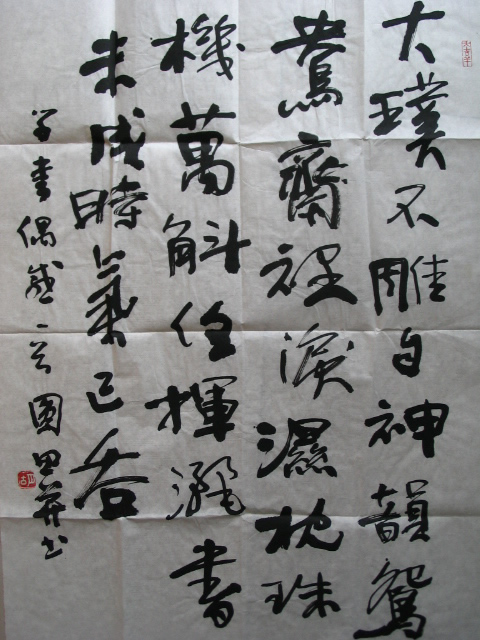 大璞不雕自神韻鴛
鴦齋裡淚濕枕珠
機萬斛任揮灑書
未成時氣已吞
学書偶感一首圓田并书